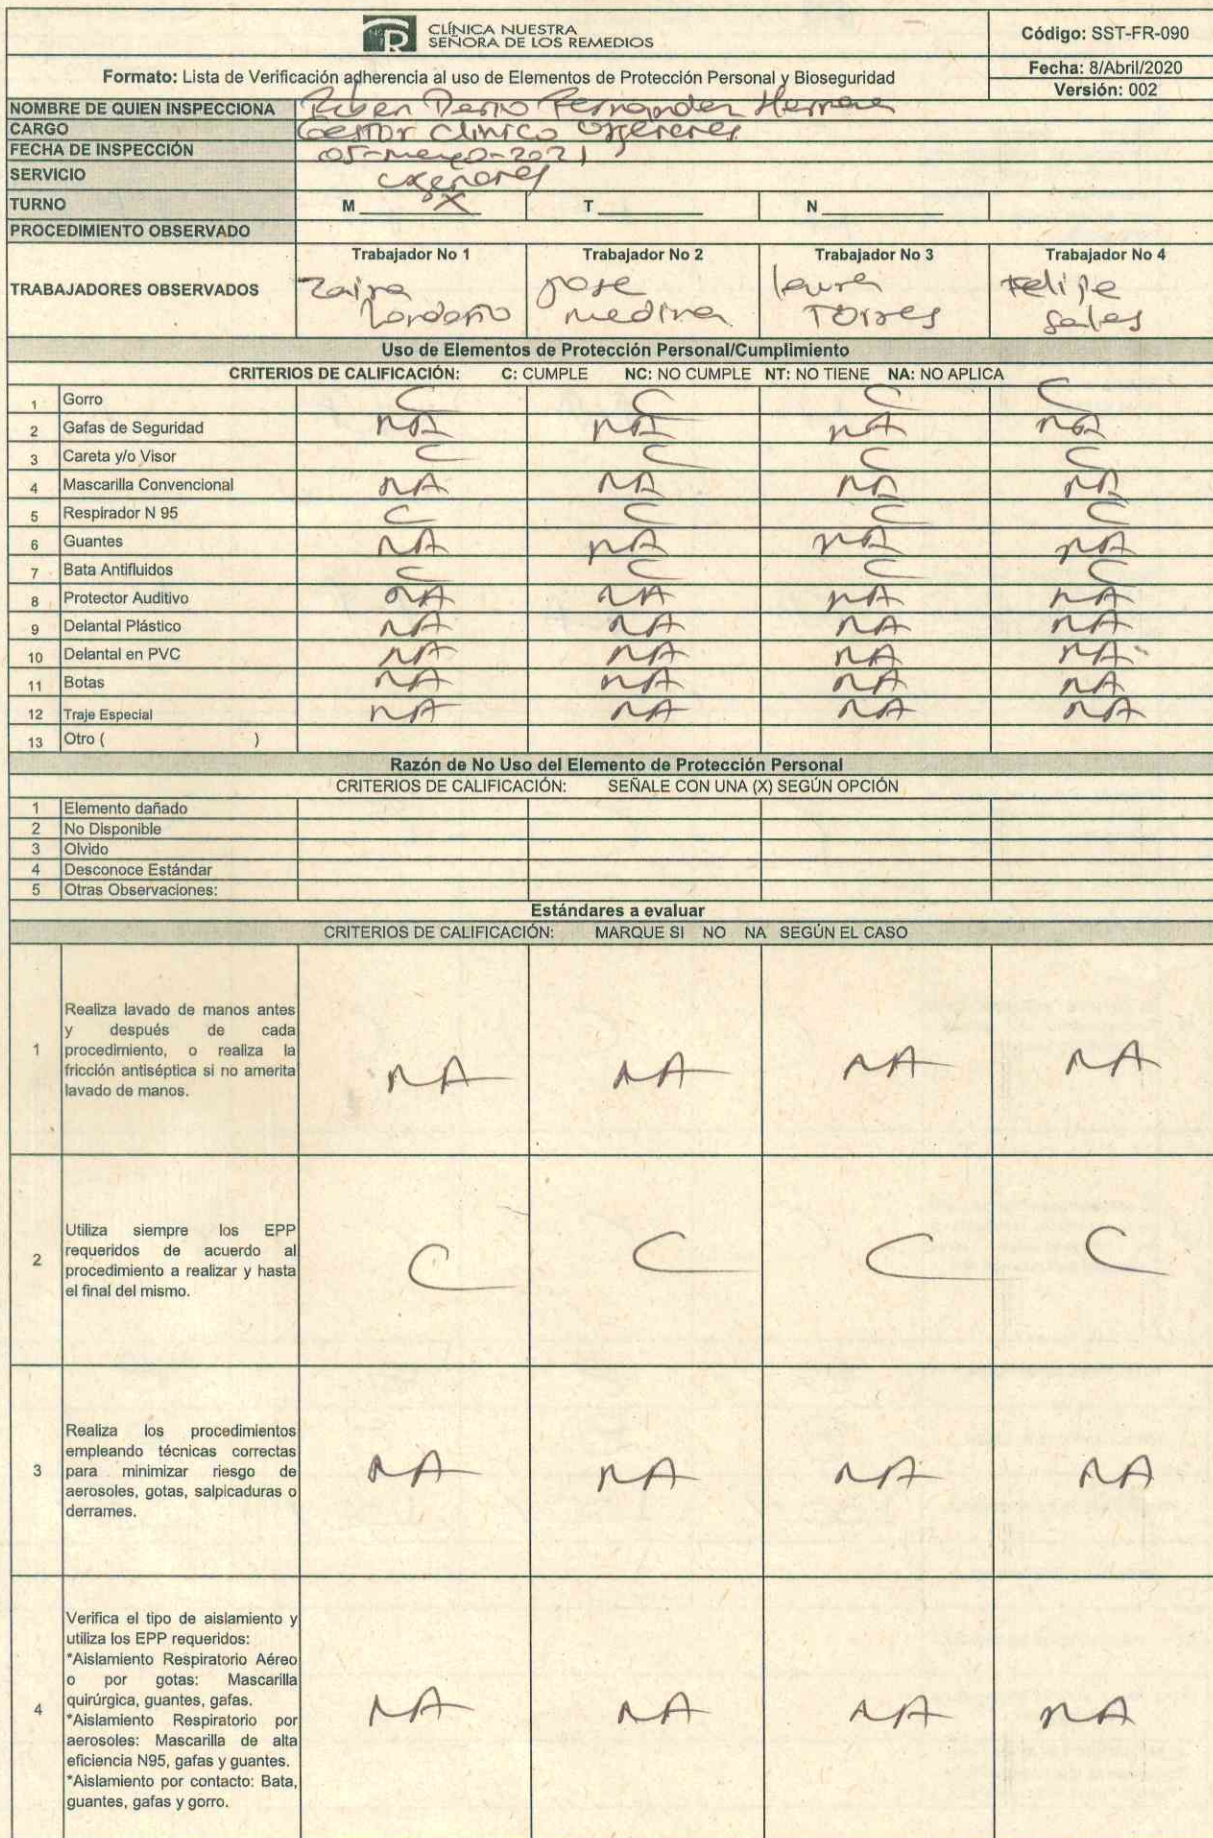 CLÍNICA NUESTRA
SEÑORA DE LOS REMEDIOS
Código: SST-FR-090
Formato: Lista de Verificación adherencia al uso de Elementos de Protección Personal y Bioseguridad
Fecha: 8/Abril/2020
Versión: 002
NOMBRE DE QUIEN INSPECCIONA Ruben Dario Fernandez Herrera
CARGO Gestor Clínico
FECHA DE INSPECCIÓN 05-mayo-2021
SERVICIO
TURNO M X T N
PROCEDIMIENTO OBSERVADO
TRABAJADORES OBSERVADOS
Trabajador No 1 Trabajador No 2 Trabajador No 3 Trabajador No 4
Zaira Jose Laura Felipe
Londoño Medina Torres Salas
Uso de Elementos de Protección Personal/Cumplimiento
CRITERIOS DE CALIFICACIÓN: C: CUMPLE NC: NO CUMPLE NT: NO TIENE NA: NO APLICA
1 Gorro C C C C
2 Gafas de Seguridad NA NA NA NA
3 Careta y/o Visor C C C C
4 Mascarilla Convencional NA NA NA NA
5 Respirador N 95 C C C C
6 Guantes NA NA NA NA
7 Bata Antifluidos C C C C
8 Protector Auditivo NA NA NA NA
9 Delantal Plástico NA NA NA NA
10 Delantal en PVC NA NA NA NA
11 Botas NA NA NA NA
12 Traje Especial NA NA NA NA
13 Otro ( )
Razón de No Uso del Elemento de Protección Personal
CRITERIOS DE CALIFICACIÓN: SEÑALE CON UNA (X) SEGÚN OPCIÓN
1 Elemento dañado
2 No Disponible
3 Olvido
4 Desconoce Estándar
5 Otras Observaciones:
Estándares a evaluar
CRITERIOS DE CALIFICACIÓN: MARQUE SI NO NA SEGÚN EL CASO
1
Realiza lavado de manos antes
y después de cada
procedimiento, o realiza la
fricción antiséptica si no amerita
lavado de manos.
NA NA NA NA
2
Utiliza siempre los EPP
requeridos de acuerdo al
procedimiento a realizar y hasta
el final del mismo.
C C C C
3
Realiza los procedimientos
empleando técnicas correctas
para minimizar riesgo de
aerosoles, gotas, salpicaduras o
derrames.
NA NA NA NA
4
Verifica el tipo de aislamiento y
utiliza los EPP requeridos:
*Aislamiento Respiratorio Aéreo
o por gotas: Mascarilla
quirúrgica, guantes, gafas.
*Aislamiento Respiratorio por
aerosoles: Mascarilla de alta
eficiencia N95, gafas y guantes.
*Aislamiento por contacto: Bata,
guantes, gafas y gorro.
NA NA NA NA